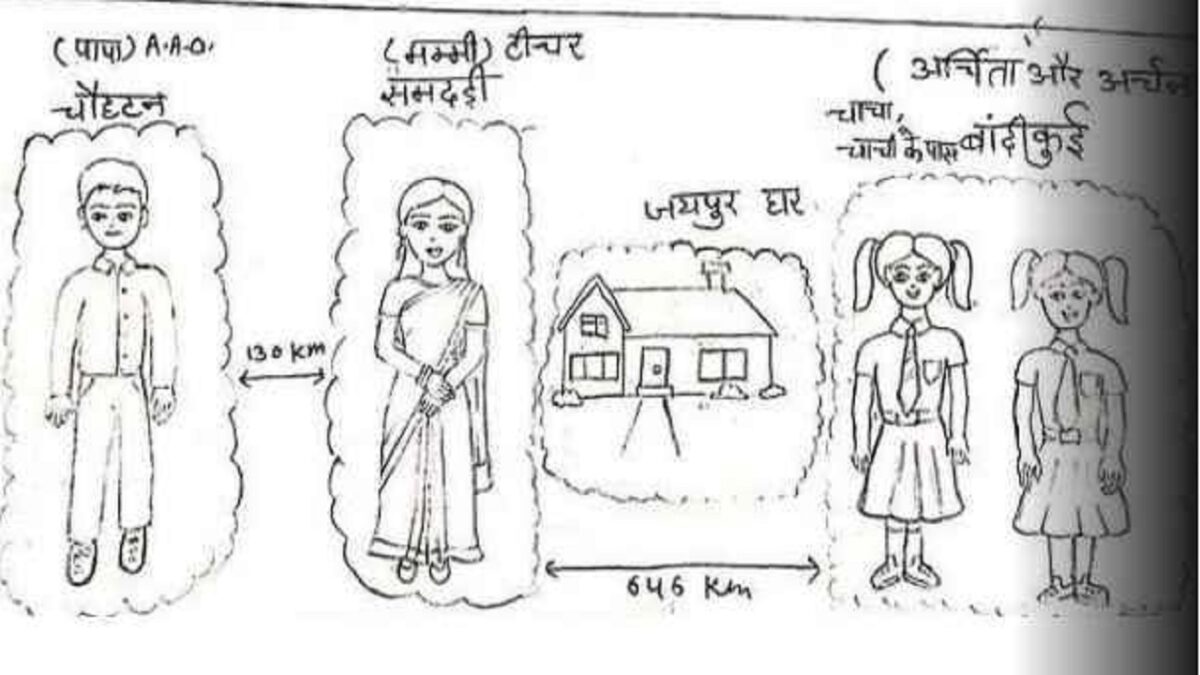 (पापा) A.A.O.
चौहटन
(मम्मी) टीचर
समदड़ी
जयपुर घर
(अर्चिता और अर्चना
चाचा,
चाची के पास बांदीकुई
130 Km
646 Km